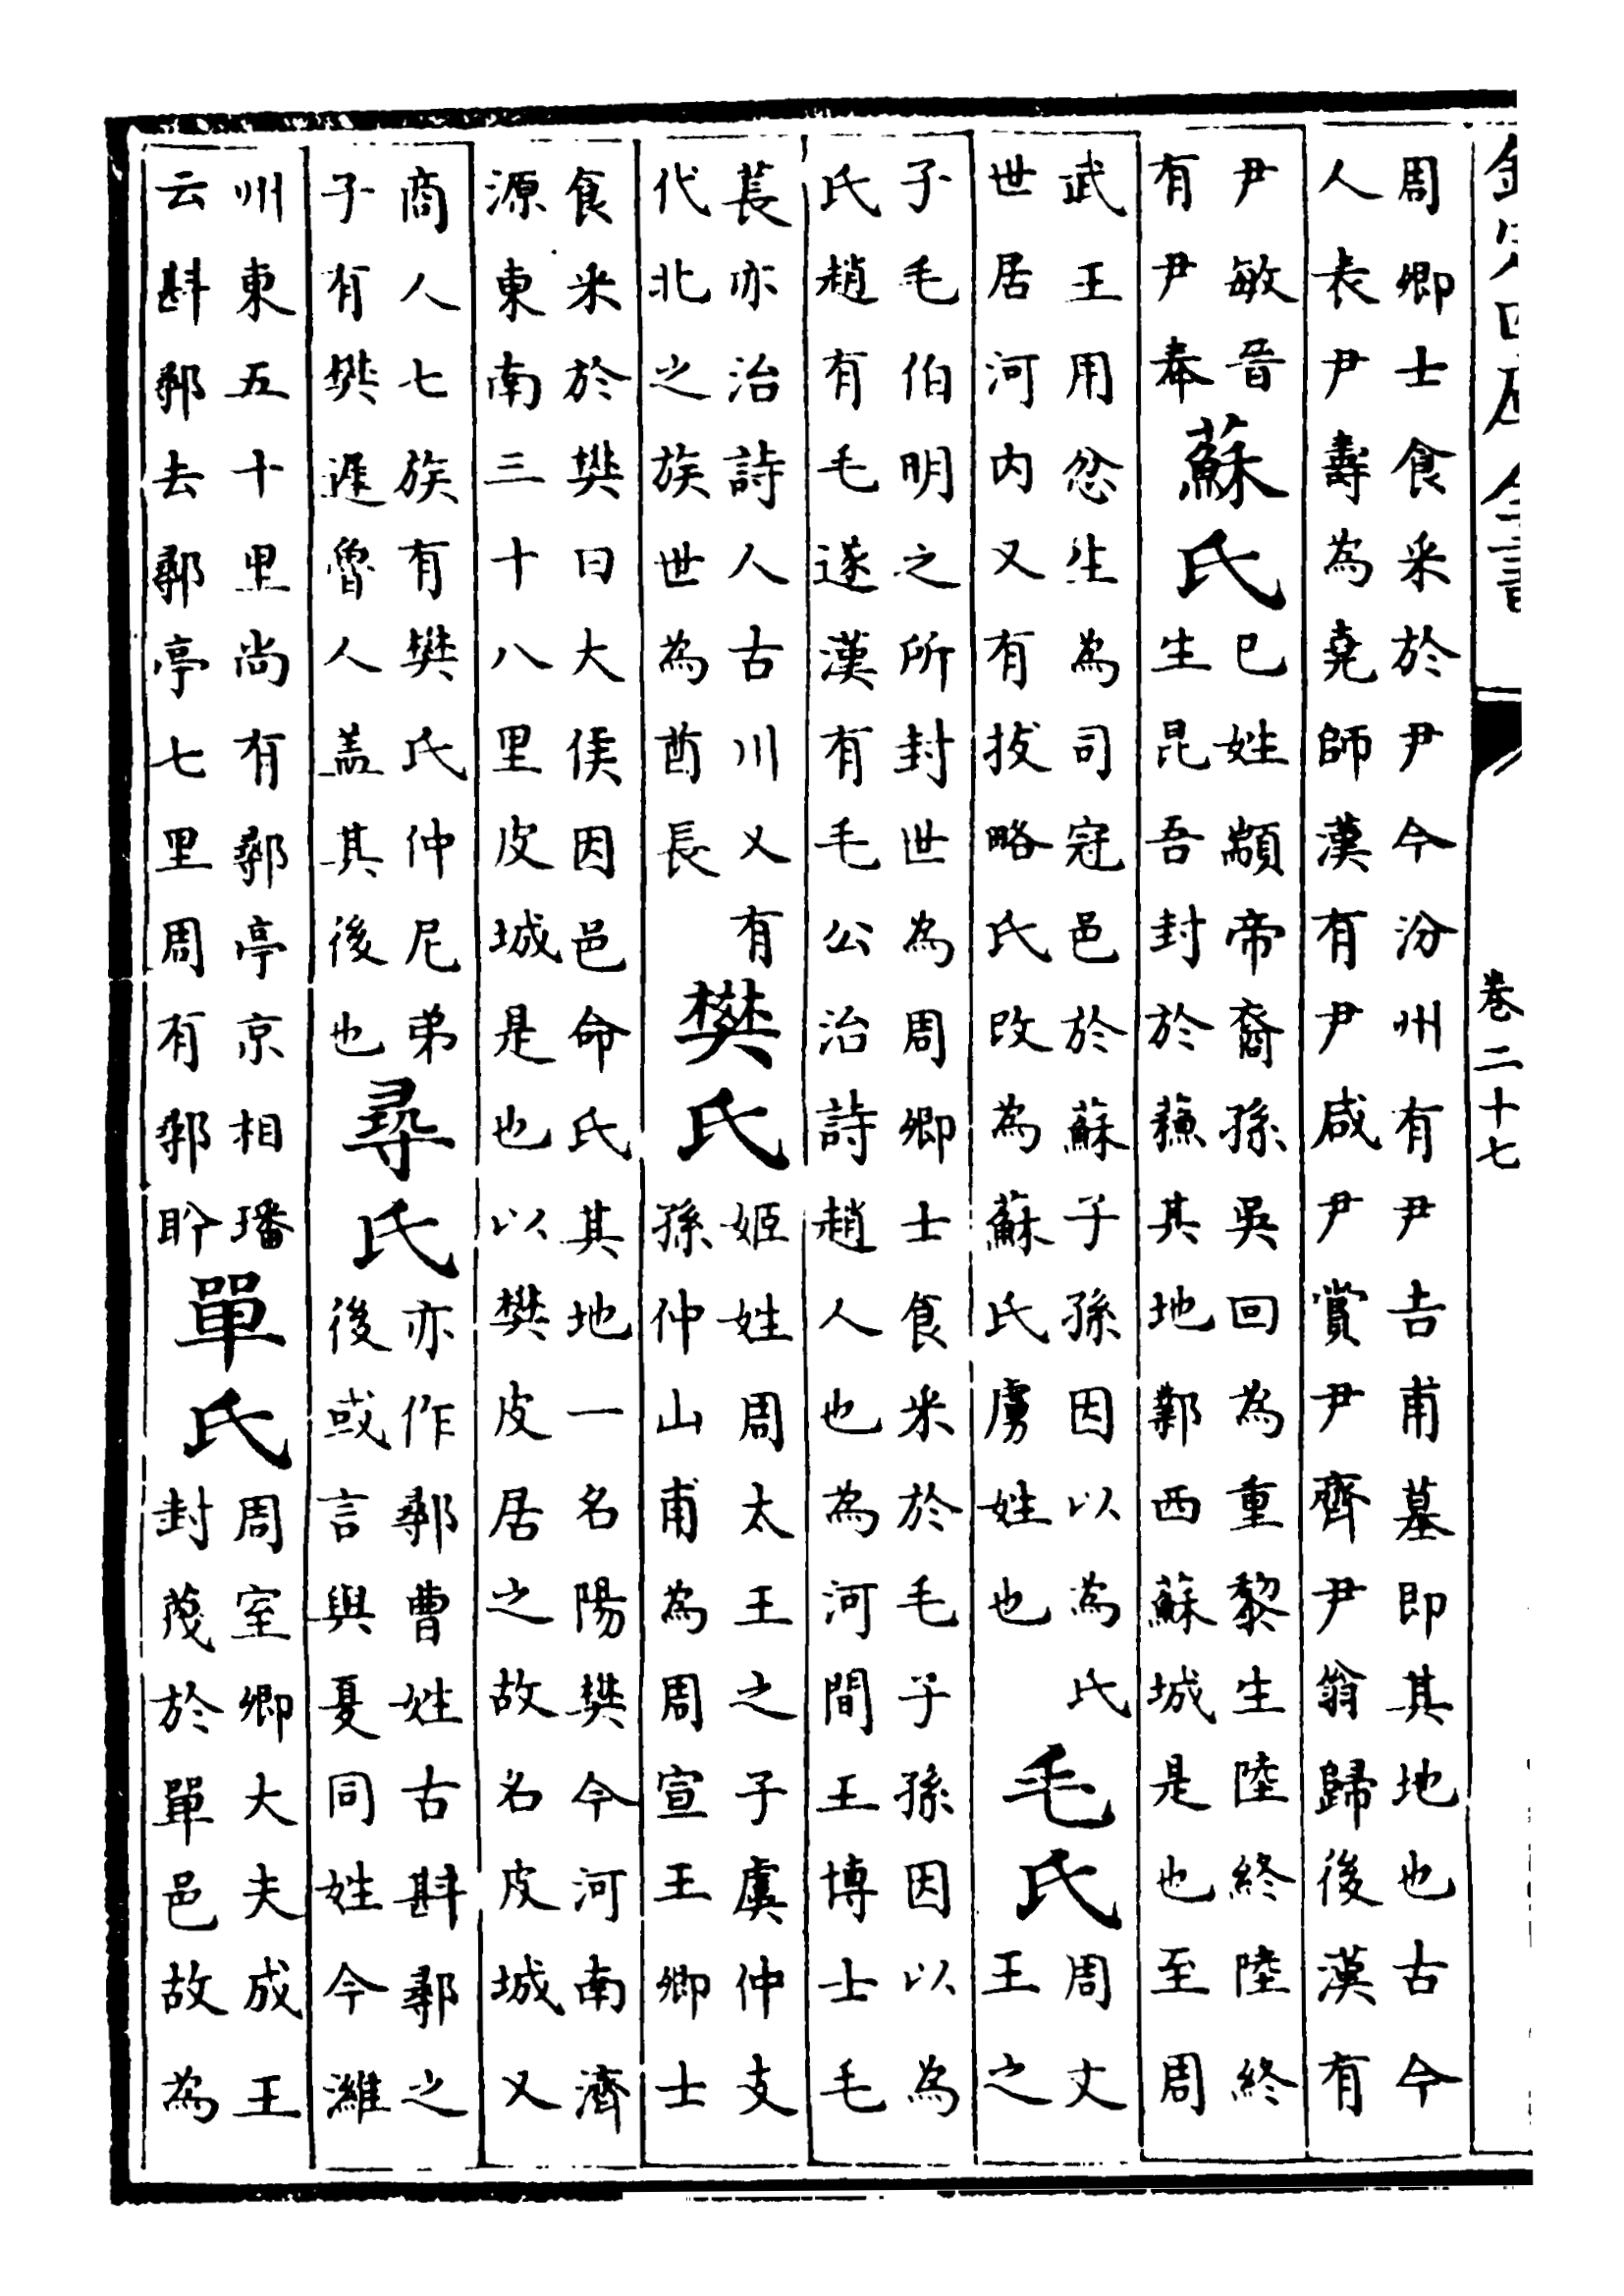 欽定四庫全書
卷二十七
周卿士食采於尹今汾州有尹吉甫墓即其地也古今
人表尹壽為堯師漢有尹咸尹賞尹齊尹翁歸後漢有
尹敏晉
有尹奉
蘇氏
已姓顓帝裔孫吳回為重黎生陸終陸終
生昆吾封於蘓其地鄴西蘇城是也至周
武王用忿生為司冦邑於蘇子孫因以為氏
世居河内又有拔略氏改為蘇氏虜姓也
毛氏
周文
王之
子毛伯明之所封世為周卿士食采於毛子孫因以為
氏趙有毛遂漢有毛公治詩趙人也為河間王博士毛
萇亦治詩人古川又有
代北之族世為酋長
樊氏
姬姓周太王之子虞仲支
孫仲山甫為周宣王卿士
食采於樊曰大侯因邑命氏其地一名陽樊今河南濟
源東南三十八里皮城是也以樊皮居之故名皮城又
商人七族有樊氏仲尼弟
子有樊遲魯人盖其後也
尋氏
亦作鄩曹姓古斟鄩之
後或言與夏同姓今濰
州東五十里尚有鄩亭京相璠
云斟鄩去鄩亭七里周有鄩肹
單氏
周室卿大夫成王
封蔑於單邑故為